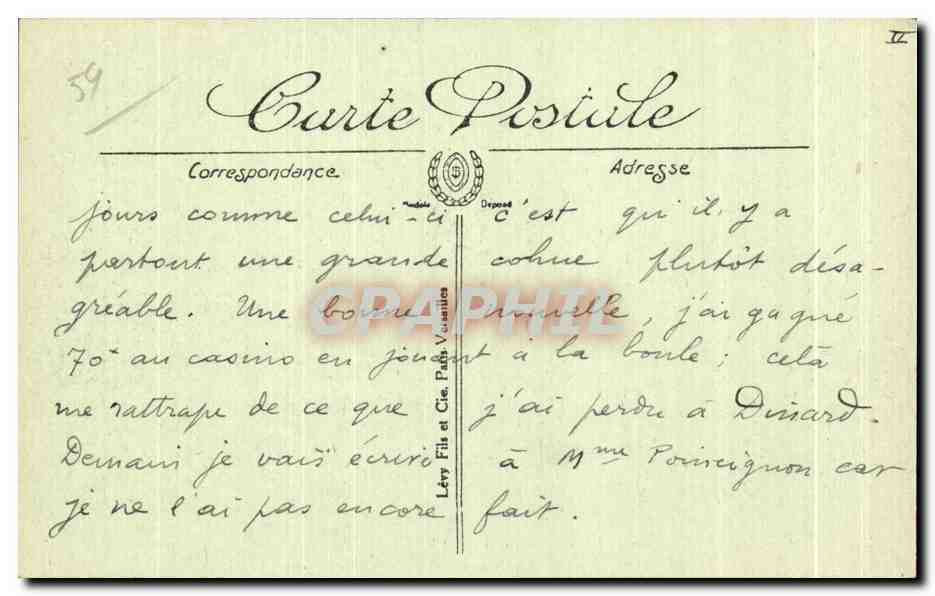 II
54
Carte Postale
Correspondance
Adresse
Modèle Déposé
jours comme celui-ci c'est qu'il y a
partout une grande cohue plutôt désa-
gréable. Une bonne nouvelle, j'ai gagné
70f au casino en jouant à la boule ; celà
me rattrape de ce que j'ai perdu à Dinard.
Demain je vais écrire à Mme Poincignon car
je ne l'ai pas encore fait.
Lévy Fils et Cie, Paris-Versailles
CPAPHIL